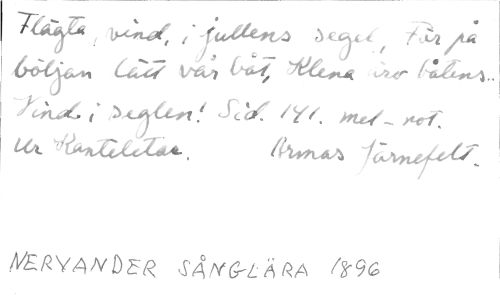 Flägta, vind, i jullens segel, För på
böljan lätt vår båt, Klena äro båtens..
Vind i seglen! Sid. 141. mel-not.
Ur Kanteletar. Armas Järnefelt.
NERVANDER SÅNGLÄRA 1896